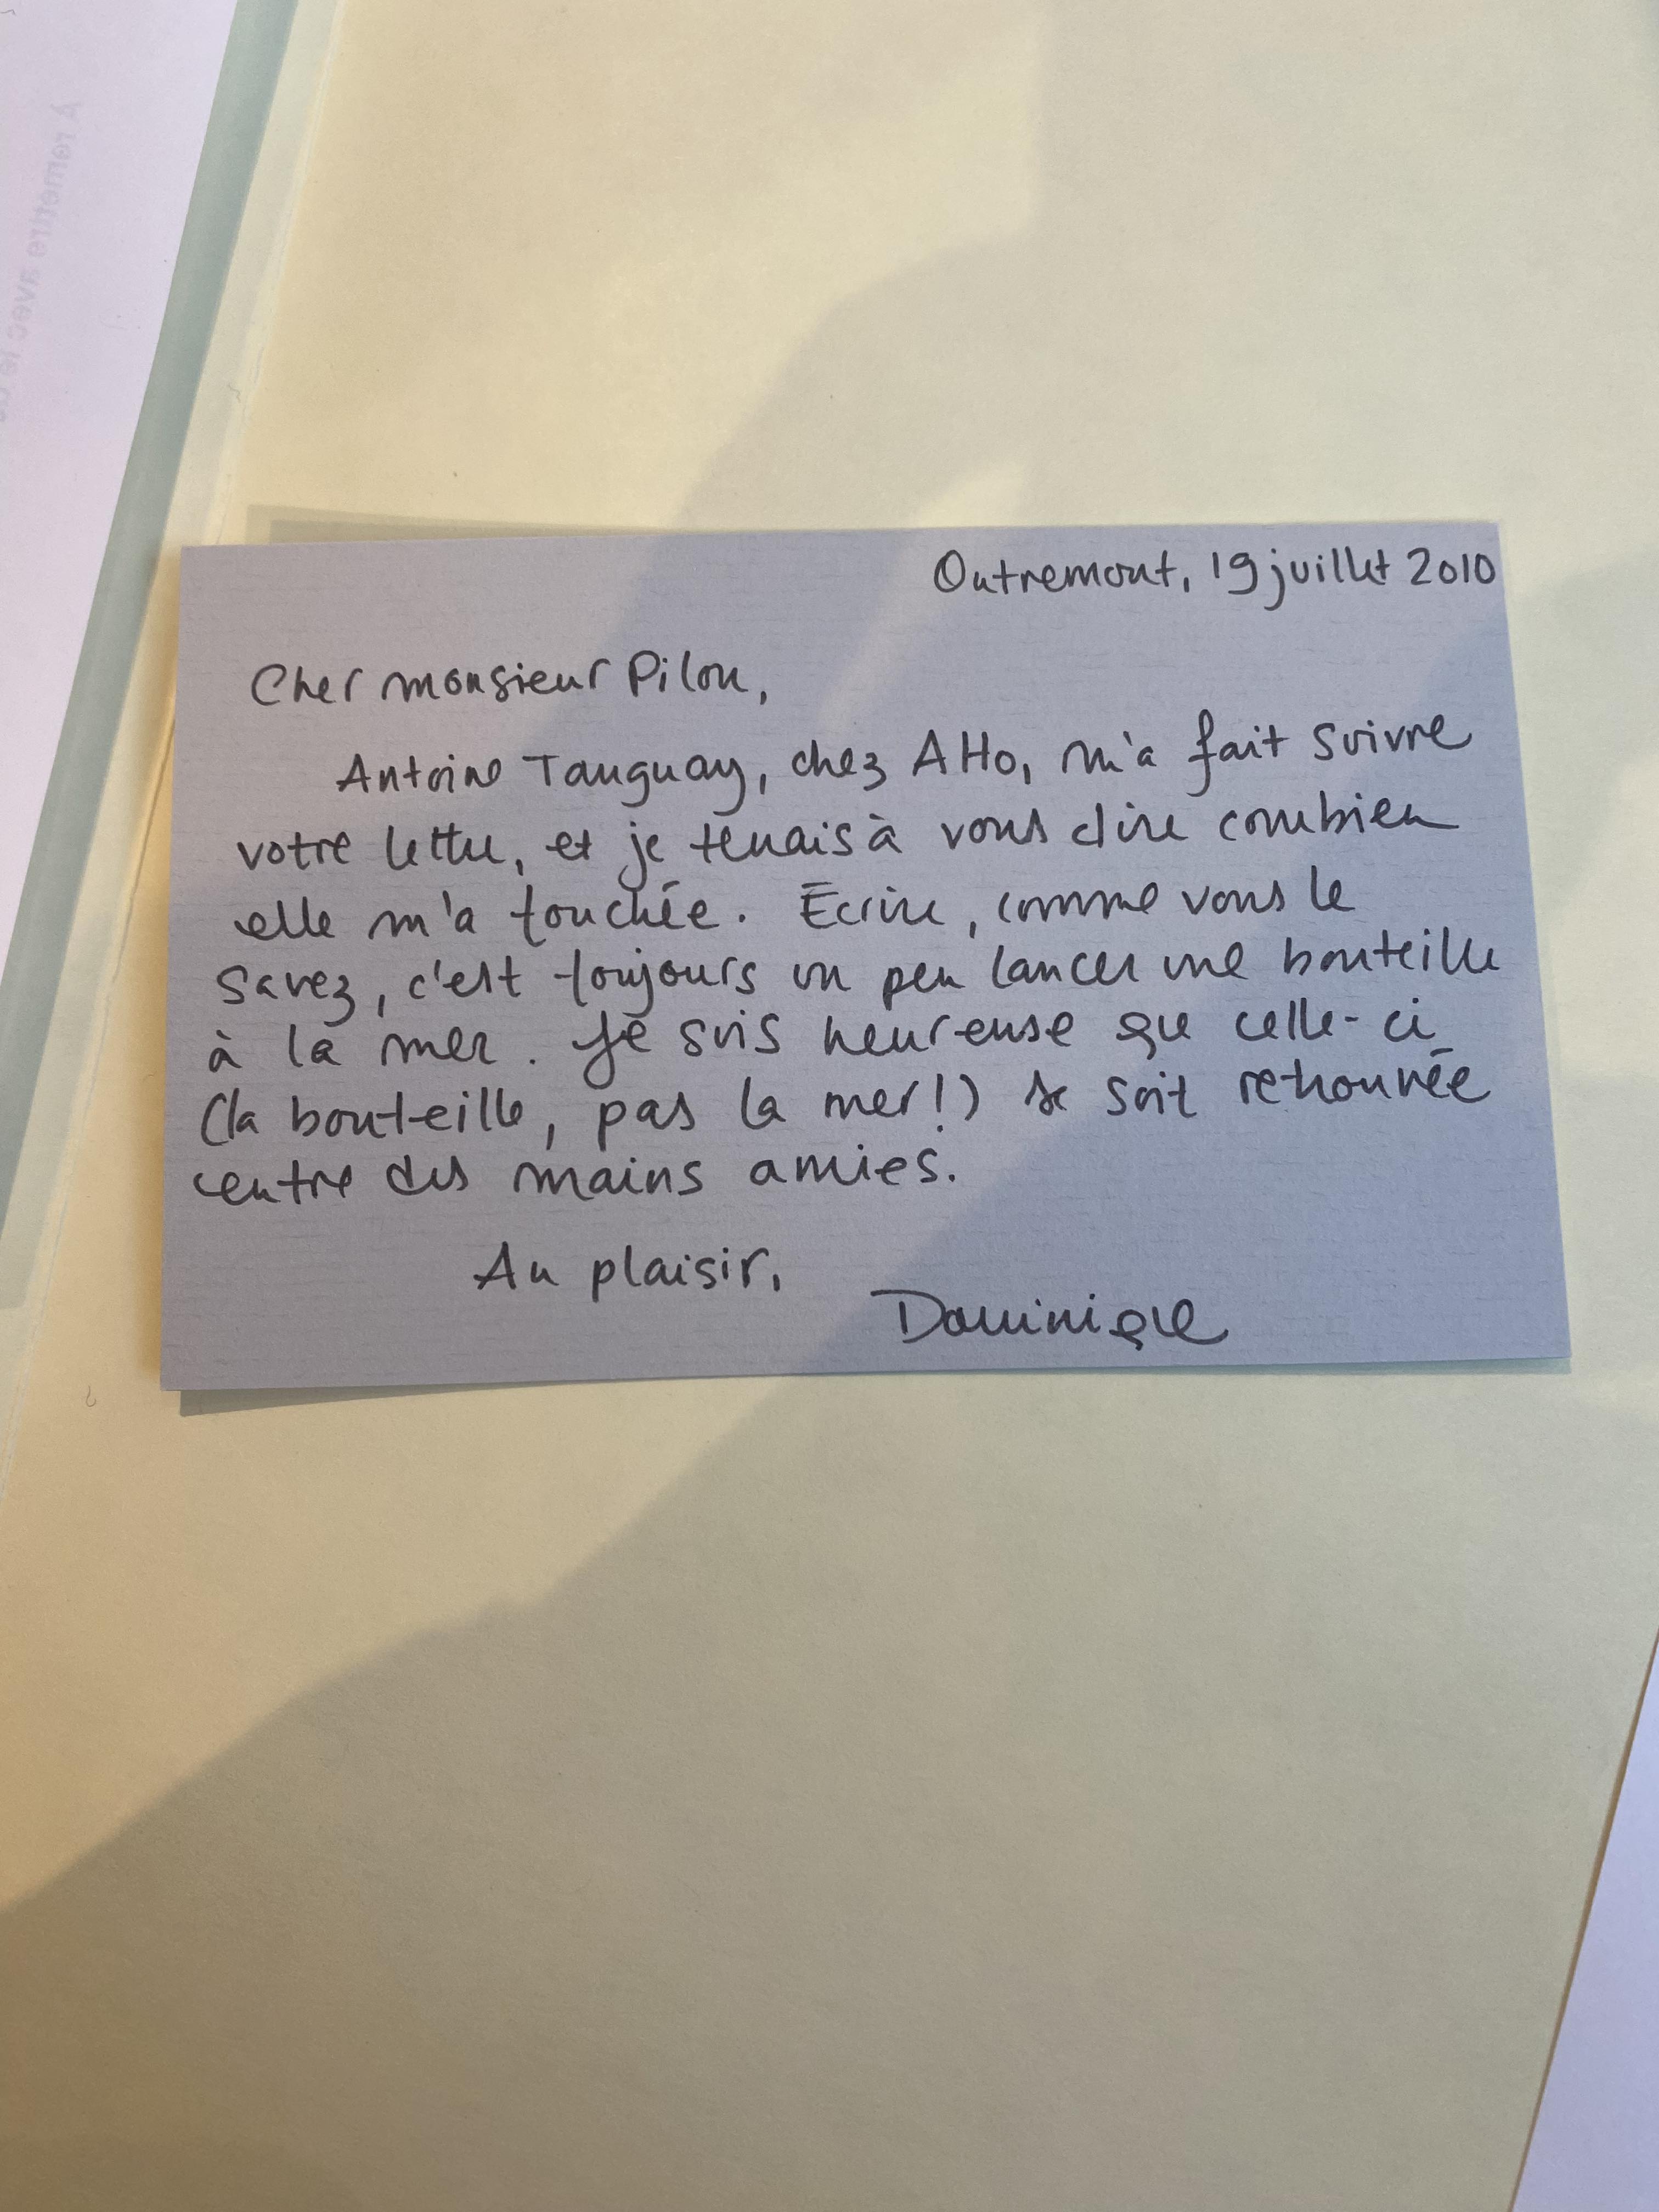 Outremont, 19 juillet 2010
Cher monsieur Pilon,
Antoine Tanguay, chez Alto, m'a fait suivre
votre lettre, et je tenais à vous dire combien
elle m'a touchée. Écrire, comme vous le
savez, c'est toujours un peu lancer une bouteille
à la mer. Je suis heureuse que celle-ci
(la bouteille, pas la mer!) se soit retrouvée
entre des mains amies.
Au plaisir,
Dominique
À remettre avec le